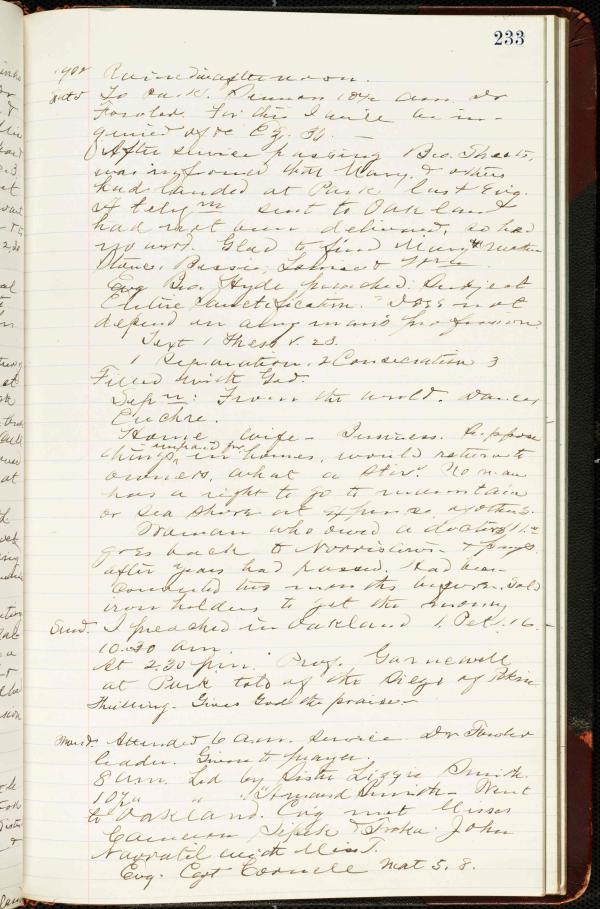 233
1902 Rained in afternoon.
Satd To Park. Sermon 10½ a.m. Dr
Fowler. For this I will be in-
quired of &c Ez.
After service passing Bro. Thoats,
was informed that Mary & others
had landed at Park last Evg.
A telegm sent to Oakland
had not been delivered, so had
no word. Glad to find Mary &
Stone, Bessie, Louise &
Evg Bro. Hyde preached. Subject
Entire Sanctification. Does not
depend on any man's profession
Text 1 Thess V. 23.
1 Separation, 2 Consecration 3
Filled with God.
Sepn: From the world. Dances
Euchre.
Home wife - Business. Suppose
things unpaid for in homes, would return to
owners, what a stir. No man
has a right to go to mountain
or sea shore at expense of others.
Woman who owed a doctor $11.00
goes back to Norristown & pays
after years had passed. Had been
converted two months before. Sold
iron holders to get the money
Sund. I preached in Oakland 1 Pet. 16-
10.30 am.
At 2.30 p.m. Prof. Gamewell
at Park told of the Siege of Pekin
Thrilling. Gives God the praise-
Mond. Attended 6 a.m. service. Dr Fowler
leader. Given to prayer.
8 am. Led by Sister Lizzie Smith.
10½ " " " Smith- Went
to Oakland. Evg met Misses
Cameron & John
Navratil with Miss T.
Evg. Capt Cornell Mat 5. 8.